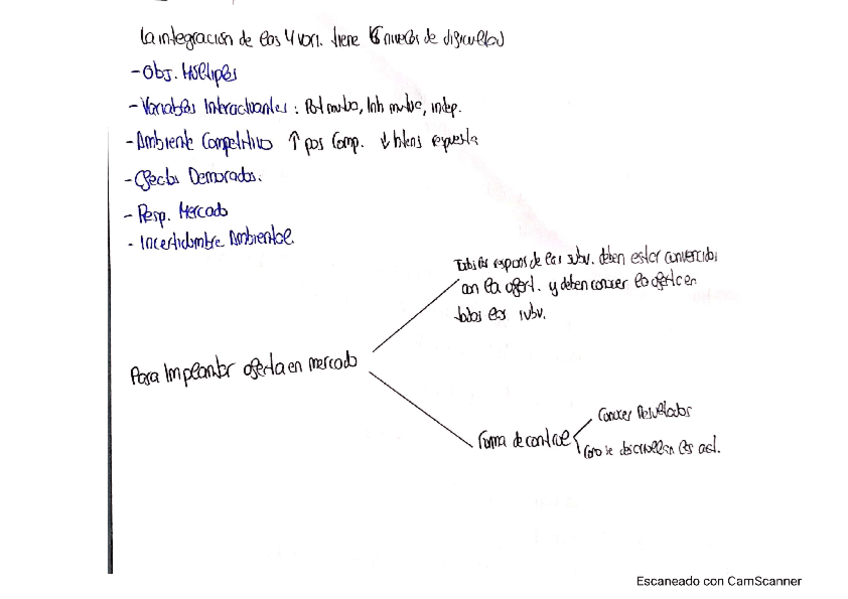 La integración de las 4 vari. tiene 6 niveles de dificultad
- Obj. Múltiples
- Variables Interactuantes : Pot mutua, Inh mutua, indep.
- Ambiente Competitivo ↑ pos Comp. ↓ tiens respuesta
- Efectos Demorados.
- Resp. Mercado
- Incertidumbre Ambiental.
Todos los respons de las subv. deben estar convencidos
con la ofert. y deben conocer la oferta en
todas las subv.
Para Implantar oferta en mercado
Forma de control
Conocer Resultados
Como se desarrollan las act.
Escaneado con CamScanner